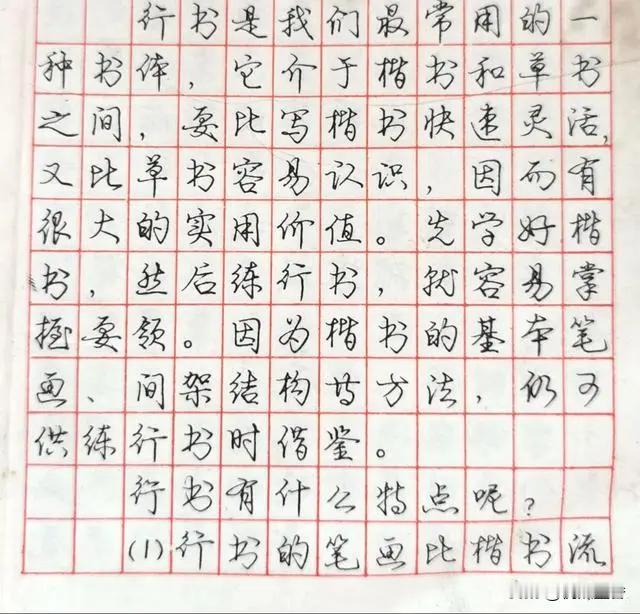 行书是我们最常用的一
种书体，它介于楷书和草书
之间，要比写楷书快速灵活，
又比草书容易认识，因而有
很大的实用价值。先学好楷
书，然后练行书，就容易掌
握要领。因为楷书的基本笔
画、间架结构等方法，仍可
供练行书时借鉴。
行书有什么特点呢？
(1)行书的笔画比楷书流